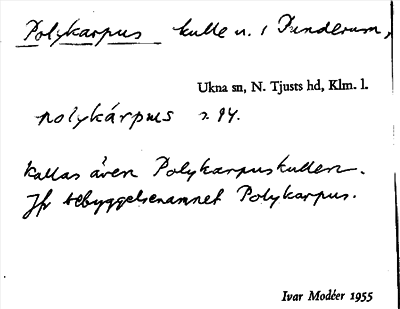 Polykarpus kulle u. i Punderum,
Ukna sn, N. Tjusts hd, Klm. l.
polykárpus s. 94.
Kallas även Polykarpuskullen.
Jfr bebyggelsenamnet Polykarpus.
Ivar Modéer 1955